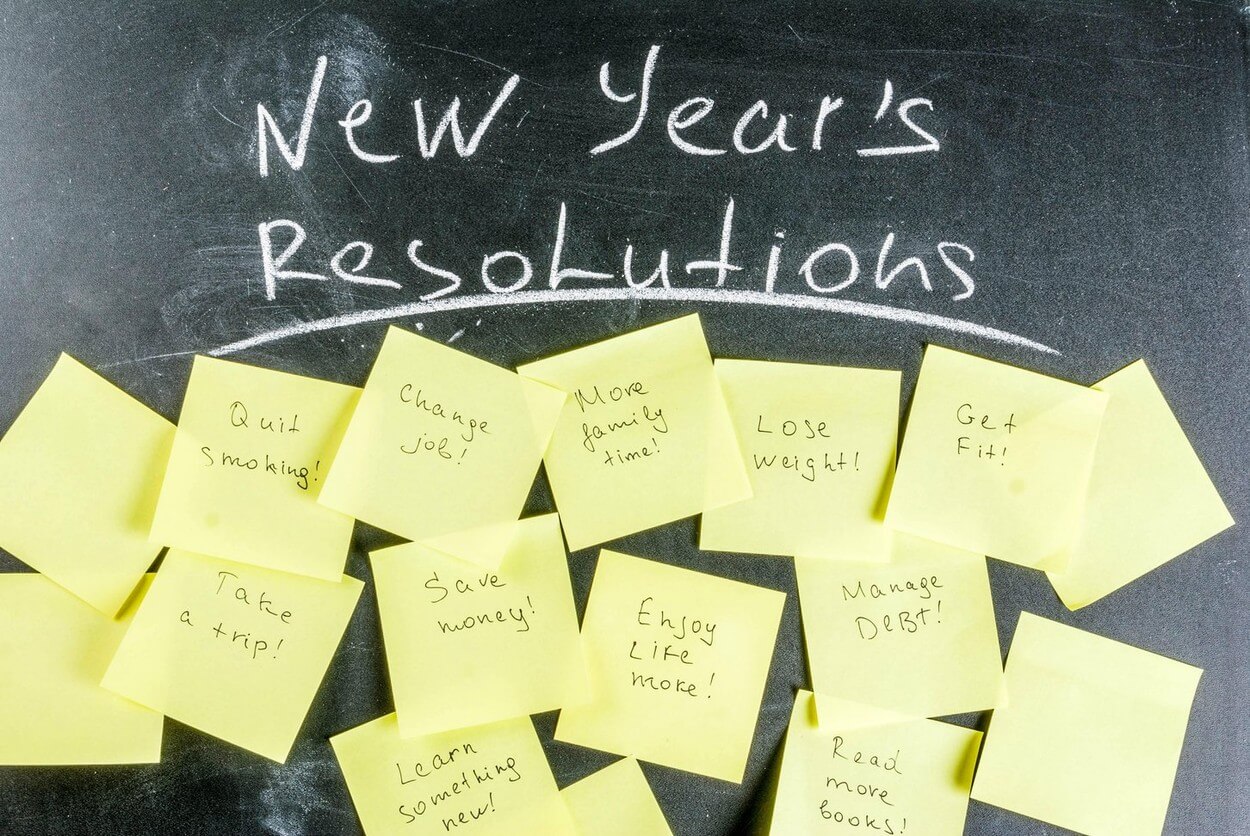 New Year's
Resolutions
Quit
smoking!
Change
job!
More
family
time!
Lose
weight!
Get
Fit!
Take
a trip!
Save
money!
Enjoy
Life
more!
Manage
DEBT!
Learn
something
new!
Read
more
books!